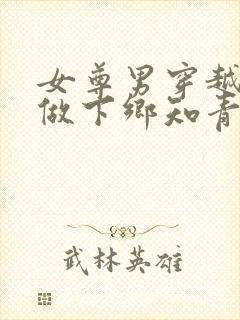 女尊男穿越
做下乡知青
武林英雄